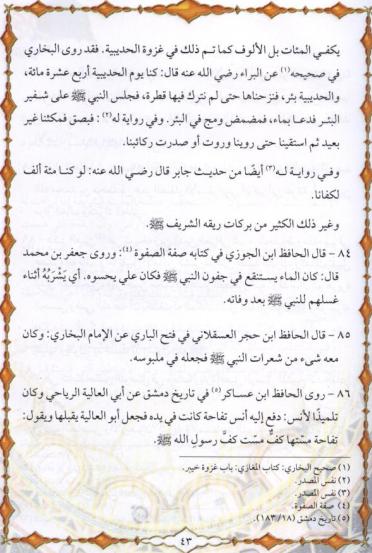 يكفـي المئات بل الألوف كما تـم ذلك في غزوة الحديبية. فقد روى البخاري
في صحيحه(١) عن البراء رضي الله عنه قال: كنا يوم الحديبية أربع عشرة مائة،
والحديبية بئر، فنزحناها حتى لم نترك فيها قطرة، فجلس النبي ﷺ على شفير
البئـر فدعـا بماء، فمضمض ومج في البئر. وفي رواية لـه(٢): فبصق فمكثنا غير
بعيد ثم استقينا حتى روينا وروت أو صدرت ركائبنا.
وفـي روايـة لـه(٣) أيضًا من حديث جابر قال رضي الله عنه: لو كنـا مئة ألف
لكفانا.
وغير ذلك الكثير من بركات ريقه الشريف ﷺ.
٨٤ - قال الحافظ ابن الجوزي في كتابه صفة الصفوة(٤): وروى جعفر بن محمد
قال: كان الماء يستنقع في جفون النبي ﷺ فكان علي يحسوه. أي يَشْرَبُهُ أثناء
غسلهم للنبي ﷺ بعد وفاته.
٨٥ - قال الحافظ ابن حجر العسقلاني في فتح الباري عن الإمام البخاري: وكان
معه شىء من شعرات النبي ﷺ فجعله في ملبوسه.
٨٦ - روى الحافظ ابن عساكر(٥) في تاريخ دمشق عن أبي العالية الرياحي وكان
تلميذًا لأنس: دفع إليه أنس تفاحة كانت في يده فجعل أبو العالية يقبلها ويقول:
تفاحة مسّتها كفٌّ مسّت كفَّ رسولِ الله ﷺ.
(١) صحيح البخاري: كتاب المغازي: باب غزوة خيبر.
(٢) نفس المصدر.
(٣) نفس المصدر.
(٤) صفة الصفوة.
(٥) تاريخ دمشق (١٨٣/١٨)
٤٣